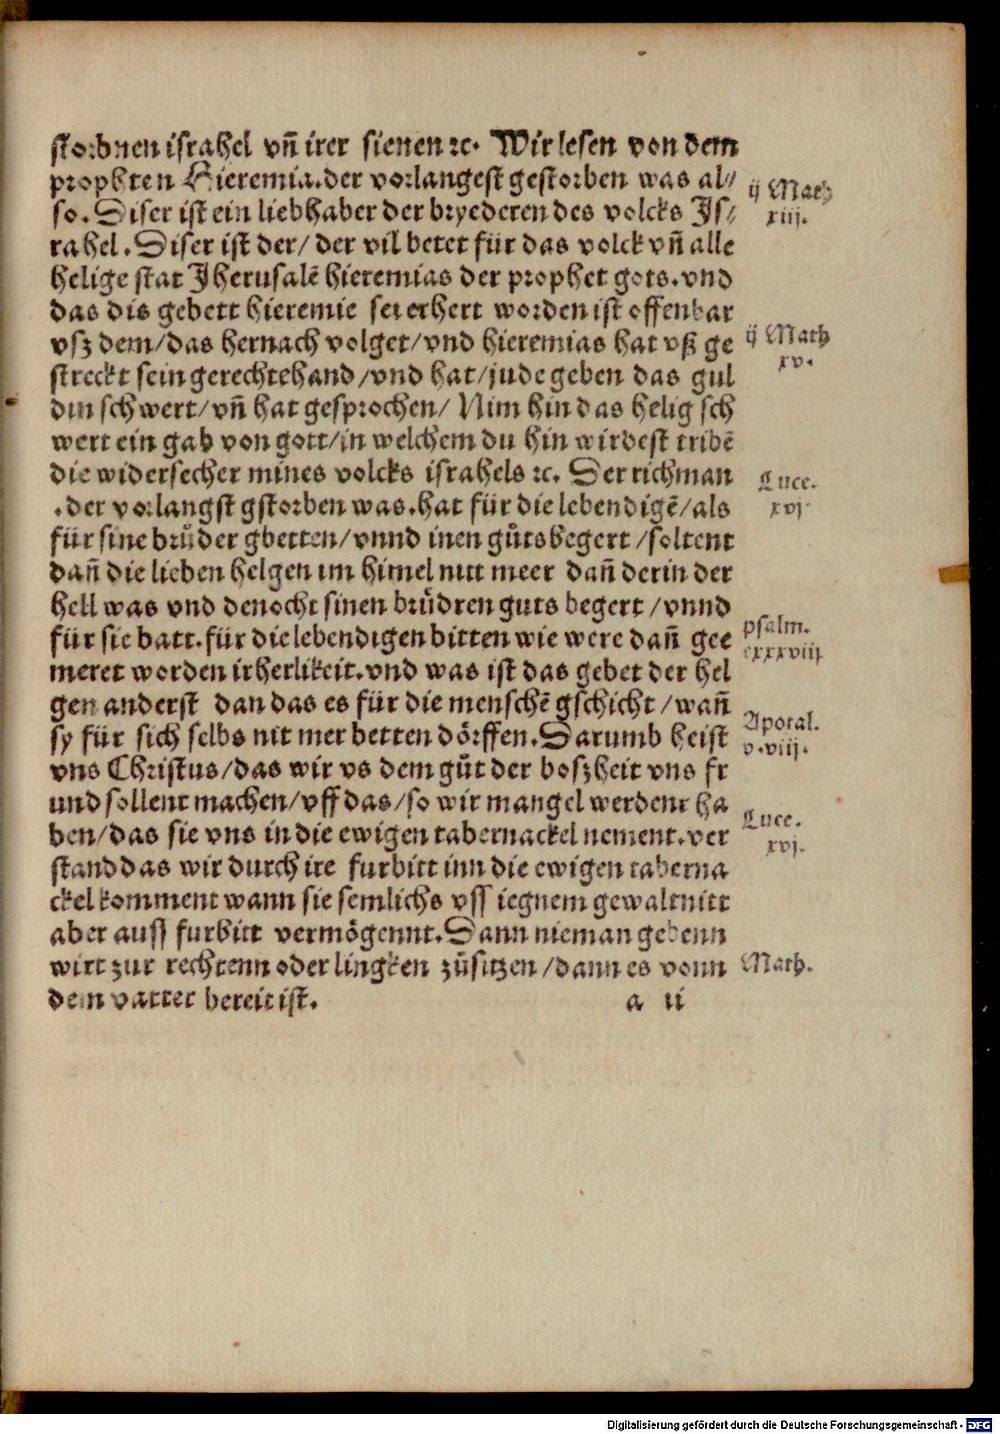 storbnen israhel vn̄ irer sienen ꝛc. Wir lesen von dem
propheten Hieremia.der vorlangest gestorben was al⸗
so.Diser ist ein liebhaber der bryederen des volcks Js⸗
rahel.Diser ist der/der vil betet für das volck vn̄ alle
helige stat Jherusalē hieremias der prophet gots.vnd
das dis gebett hieremie sei erhert worden ist offenbar
vsz dem/das hernach volget/vnd hieremias hat vß ge
streckt sein gerechtehand/vnd hat/jude geben das gul
din schwert/vn̄ hat gesprochen/ Nim hin das helig sch
wert ein gab von gott/in welchem du hin wirdest tribē
die widersecher mines volcks israhels ꝛc. Der richman
.der vorlangst gstorben was.hat für die lebendigē/als
für sine brůder gbetten/vnnd inen gůts begert/soltent
dan̄ die lieben helgen im himel nitt meer dan̄ der in der
hell was vnd denocht sinen brůdren guts begert/vnnd
für sie batt.für die lebendigen bitten wie were dan̄ gee
meret worden ir herlikeit.vnd was ist das gebet der hel
gen anderst dan das es für die menschē gschicht/wan̄
sy für sich selbs nit mer betten dörffen.Darumb heist
vns Christus/das wir vs dem gůt der boszheit vns fr
und sollent machen/vff das/so wir mangel werdent ha
ben/das sie vns in die ewigen tabernackel nement.ver
stand das wir durch ire furbitt inn die ewigen taberna
ckel komment wann sie semlichs vss iegnem gewalt nitt
aber auss furbitt vermögennt.Dann nieman gebenn
wirt zur rechtenn oder lingken zůsitzen/dann es vonn
dem vatter bereit ist.
a ii
ij Math
xiij.
ij Math
xv.
Luce.
xvj
psalm.
cxxxviij
Apocal.
v.viij.
Luce.
xvj.
Math.
Digitalisierung gefördert durch die Deutsche Forschungsgemeinschaft - DFG